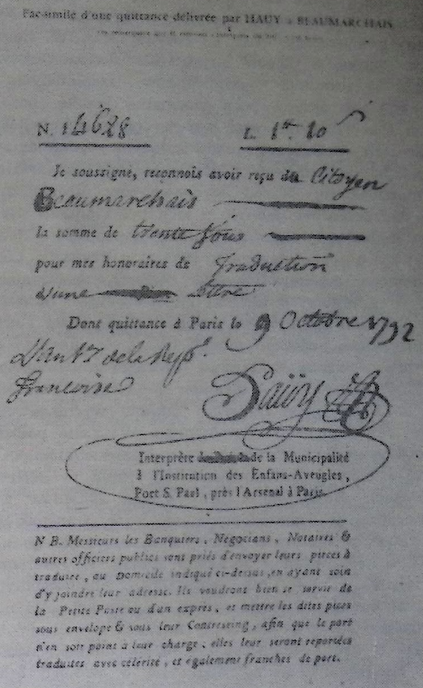 Fac-simile d'une quittance délivrée par HAUY à BEAUMARCHAIS
N. 14628 L. 1tt 10s
Je soussigné, reconnois avoir reçu du Citoyen
Beaumarchais
la somme de trente sous
pour mes honoraires de traduction
d'une lettre
Dont quittance à Paris le 9 Octobre 1792
L'an 1er de la Rép.
françoise
haüy
Interprète de la Municipalité
à l'Institution des Enfans-Aveugles,
Port S. Paul, près l'Arsenal à Paris.
N B. Messieurs les Banquiers, Négocians, Notaires &
autres officiers publics sont priés d'envoyer leurs pièces à
traduire, au Domicile indiqué ci-dessus, en ayant soin
d'y joindre leur adresse. Ils voudront bien se servir de
la Petite Poste ou d'un exprès, et mettre les dites pièces
sous envelope & sous leur Contreseing, afin que le port
n'en soit point à leur charge, elles leur seront reportées
traduites avec célérité, et également franches de port.